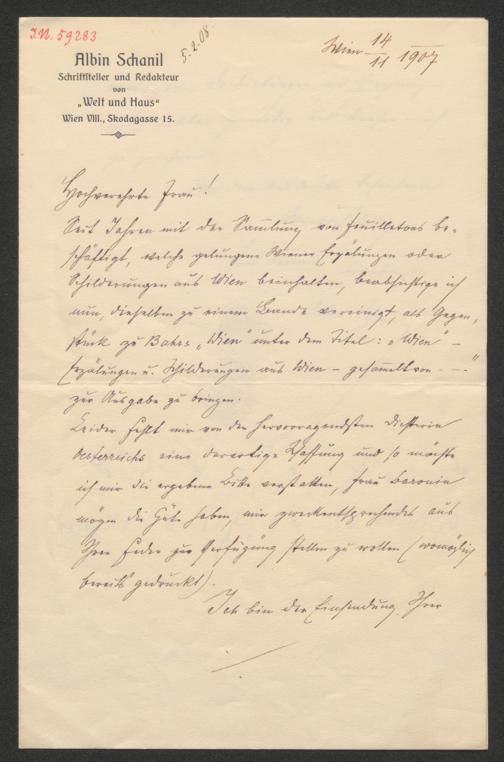 I.N. 59283
5.2.08
Albin Schanil
Schriftsteller und Redakteur
von
„Welt und Haus“
Wien VIII., Skodagasse 15.
Wien 14/11 1907
Hochverehrte Frau!
Seit Jahren mit der Sammlung von Feuilletons be-
schäftigt, welche gelungene Wiener Erzälungen oder
Schilderungen aus Wien beinhalten, beabsichtige ich
nun, dieselben zu einem Bande vereinigt, als Gegen-
stück zu Bahrs „Wien“ unter dem Titel: „Wien“ –
Erzälungen u. Schilderungen aus Wien – gesammelt von – – –“
zur Ausgabe zu bringen.
Leider fehlt mir von der hervorragendsten Dichterin
Oesterreichs eine derartige Schaffung und so möchte
ich mir die ergebene Bitte verstatten, Frau Baronin
mögen die Güte haben, mir zweckentsprechendes aus
Ihrer Feder zur Verfügung stellen zu wollen (womöglich
bereits gedruckt).
Ich bin der Einsendung Ihrer